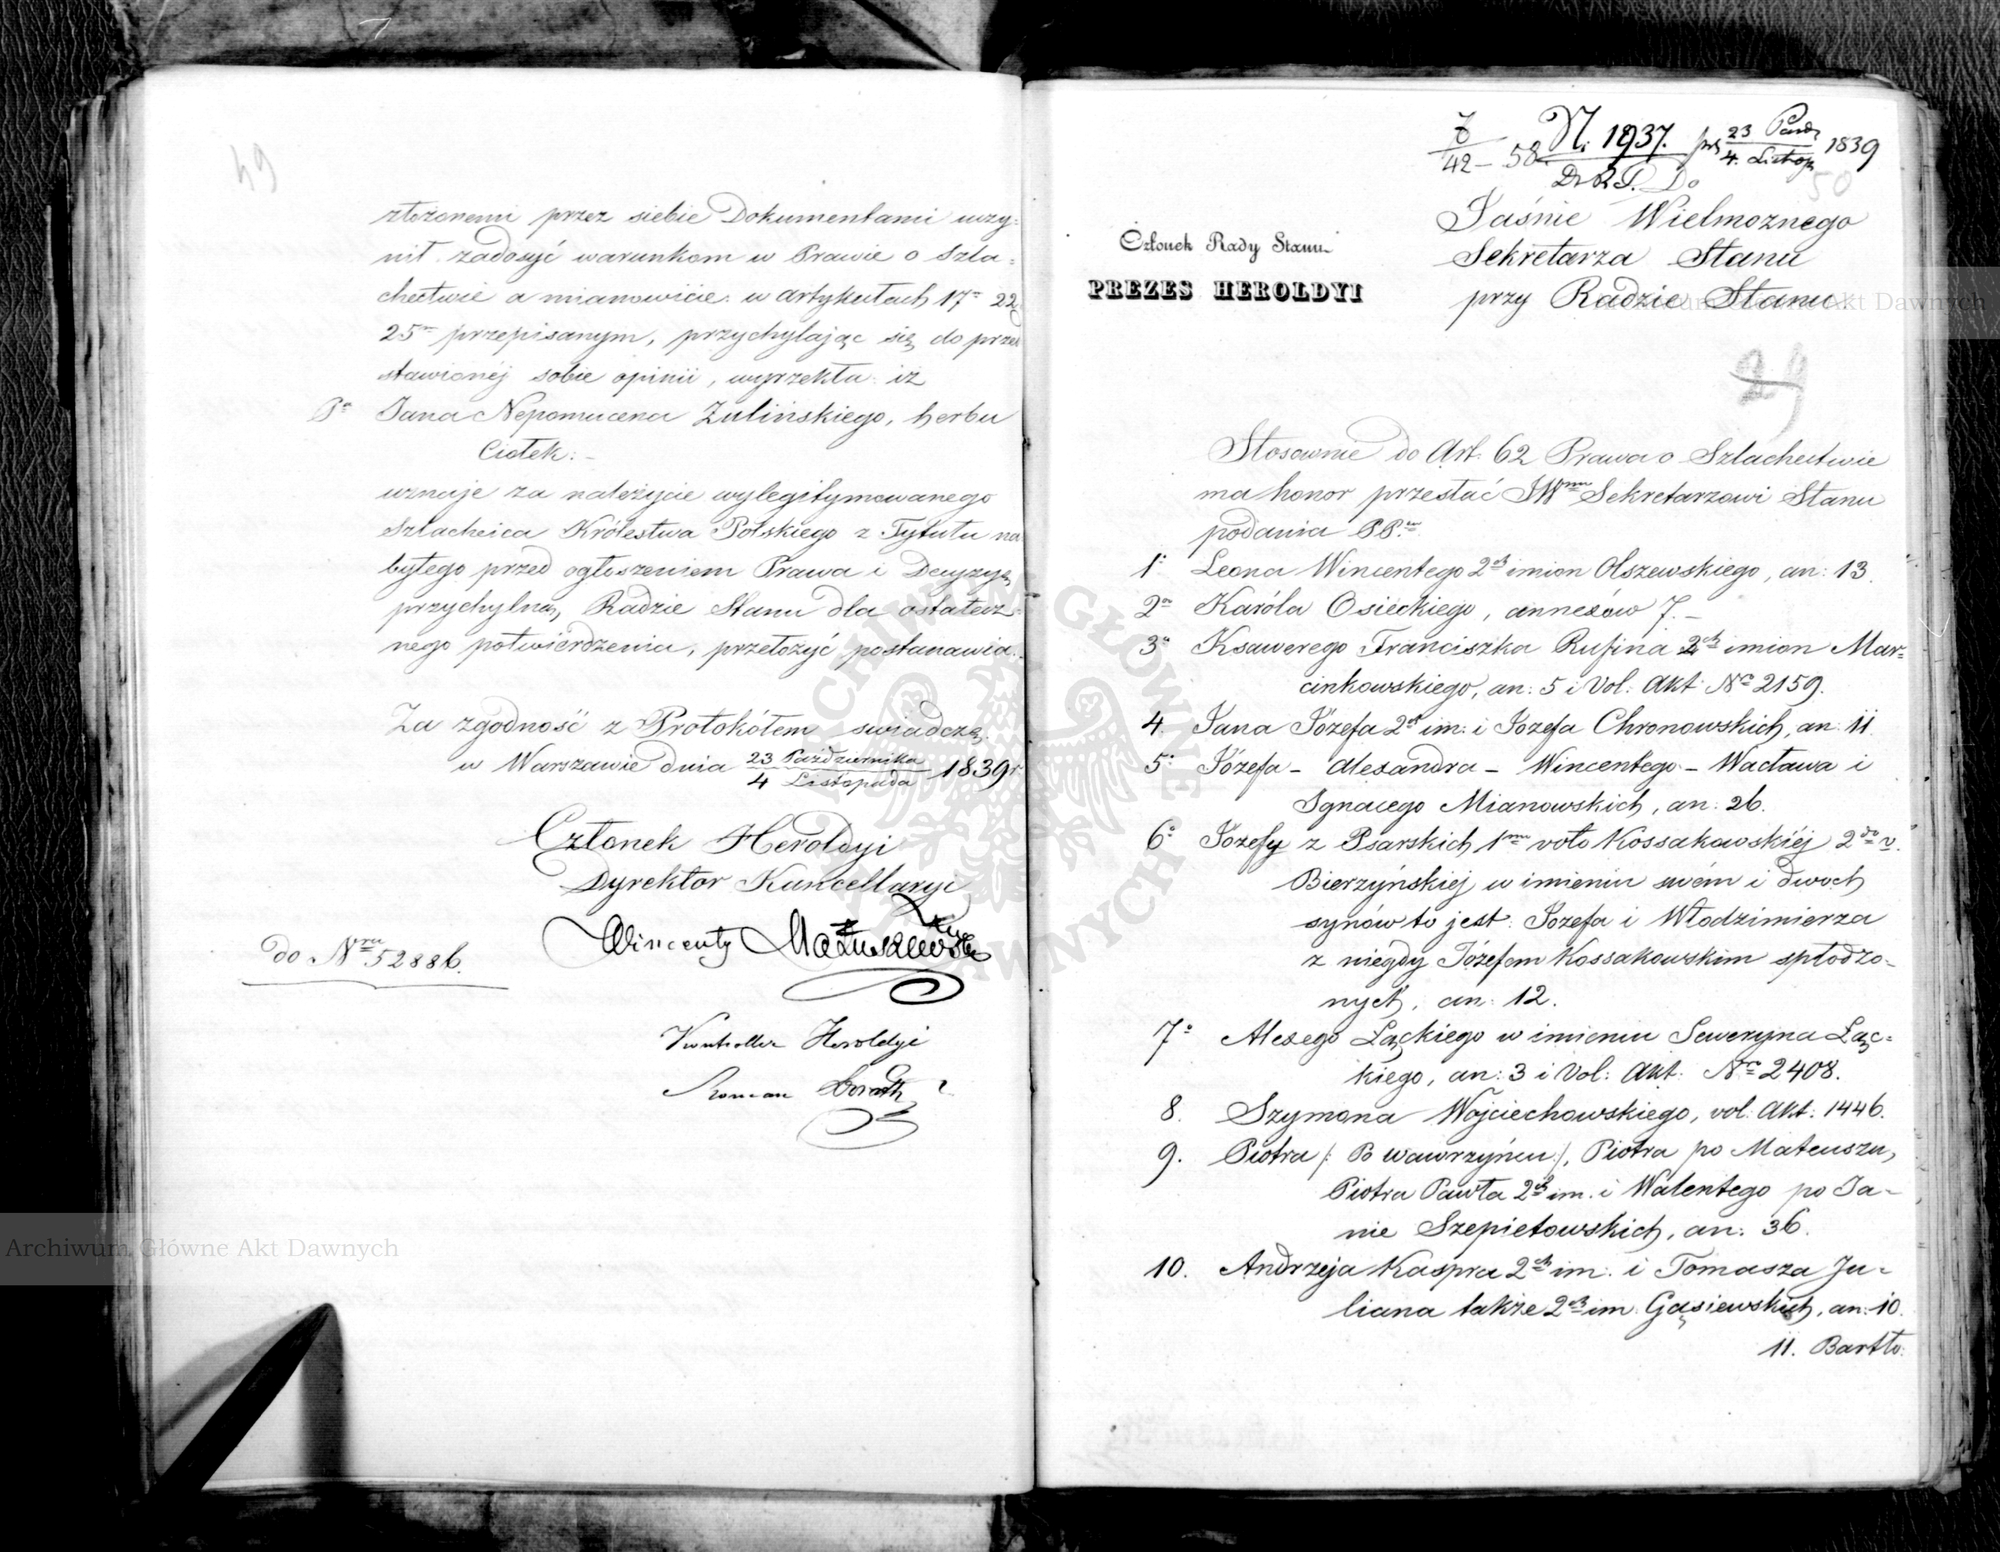 49
złożonemi przez siebie Dokumentami uczy:
nił zadosyć warunkom w Prawie o Szla:
chectwie a mianowicie w artykułach 17m 22
25m przepisanym, przychylając się do przed
stawionéj sobie opinii, wyrzekła iż
Pa Jana Nepomucena Zulińskiego, herbu
Ciołek. –
uznaje za należycie wylegitymowanego
Szlachcica Królestwa Polskiego z Tytułu na
bytego przed ogłoszeniem Prawa i Decyzyą
przychylną, Radzie Stanu dla ostatecz:
nego potwierdzenia, przełożyć postanawia.
Za zgodność z Protokółem swiadczą
w Warszawie dnia 23 Października / 4 Listopada 1839 r
Członek Heroldyi
Dyrektor Kancellaryi
Wincenty
do Nru 52886.
Kontroller Heroldyi
Roman
7/42 – 58 N. 1937. 23 Paźdz / 4 Listop 1839
Do
50
Jaśnie Wielmoznego
Sekretarza Stanu
przy Radzie Stanu
Członek Rady Stanu
PREZES HEROLDYI
29
Stosownie do Art: 62 Prawa o Szlachectwie
ma honor przesłać JWmu Sekretarzowi Stanu
podania PP.
1° Leona Wincentego 2ch imion Olszewskiego, an: 13.
2° Karóla Osieckiego, annexów 7. –
3° Ksawerego Franciszka Rufina 2ch imion Mar=
cinkowskiego, an: 5 i Vol: Akt No 2159.
4. Jana Józefa 2ch im: i Józefa Chronowskich, an: 11
5° Józefa – Alexandra – Wincentego – Wacława i
Ignacego Mianowskich, an: 26.
6° Józefy z Psarskich 1mo voto Kossakowskiéj 2do v.
Bierzyńskiéj w imieniu swém i dwóch
synów to jest: Józefa i Włodzimierza
z niegdy Józefem Kossakowskim spłodzo–
nych, an: 12.
7° Alexego Łąckiego w imieniu Seweryna Łąc=
kiego, an: 3 i Vol: Akt: Nro 2408.
8. Szymona Wojciechowskiego, vol: Akt: 1446.
9. Piotra /: Po Wawrzyńcu :/, Piotra po Mateuszu,
Piotra Pawła 2ch im. i Walentego po Ja–
nie Szepietowskich, an: 36.
10. Andrzeja Kaspra 2ch im: i Tomasza Ju–
liana także 2ch im: Gąsiewskich, an: 10.
11. Bartło:
Archiwum Główne Akt Dawnych
ARCHIWUM GŁÓWNE AKT DAWNYCH
Archiwum Główne Akt Dawnych